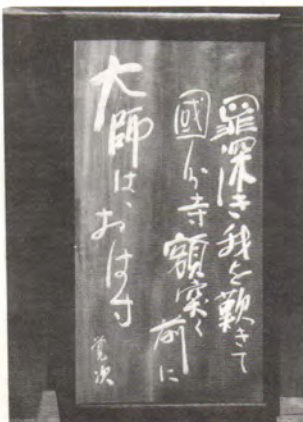 罪深き我を歎きて
國分寺額突く
前に
大師は、おはす